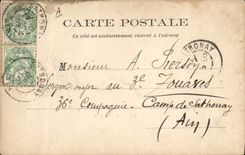 CARTE POSTALE
Ce côté est exclusivement réservé à l'adresse
Monsieur A.
Sergent major au 3e Zouaves
36e Compagnie - Camp de Sathonay
(Ain)